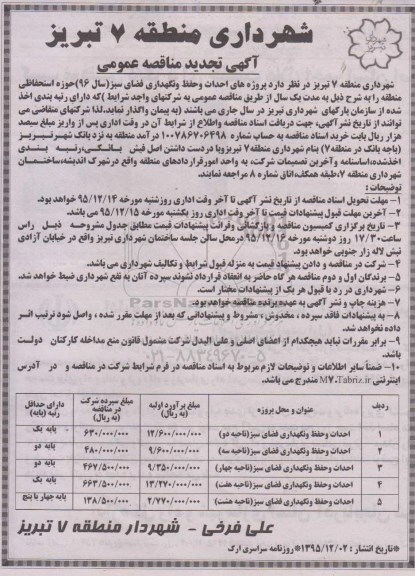 شهرداری منطقه ۷ تبریز
آگهی تجدید مناقصه عمومی
شهرداری منطقه ۷ تبریز در نظر دارد پروژه های احداث وحفظ ونگهداری فضای سبز(سال ۹۶)حوزه استحفاظی
منطقه را به شرح ذیل به مدت یک سال از طریق مناقصه عمومی به شرکتهای واجد شرایط )که دارای رتبه بندی اخذ
شده از سازمان پارکهای شهرداری تبریز در سال جاری می باشند (به پیمان واگذار نماید.لذا شرکتهای متقاضی می
توانند از تاریخ نشر آگهی، جهت دریافت اسناد مناقصه واطلاع از شرایط آن در وقت اداری پس از واریز مبلغ سیصد
هزار ریال بابت خرید اسناد مناقصه به حساب شماره ۱۰۰۷۸۶۷۰۶۴۹۸ درآمد منطقه به نزد بانک شهرتبریز
(باجه بانک در منطقه۷) بنام شهرداری منطقه۷ تبریزوبا دردست داشتن اصل فیش بانکی،رتبه بندی
اخذشده،اساسنامه وآخرین تصمیمات شرکت، به واحد امورقراردادهای منطقه واقع درشهرک اندیشه،ساختمان
شهرداری منطقه ۷،طبقه همکف،اتاق شماره ۸ مراجعه نمایند.
توضیحات :
۱- مهلت تحویل اسناد مناقصه از تاریخ نشر آگهی تا آخر وقت اداری روزشنبه مورخه ۹۵/۱۲/۱۴ خواهد بود.
۲- آخرین مهلت قبول پیشنهادات قیمت تا آخر وقت اداری روز یکشنبه مورخه ۹۵/۱۲/۱۵ می باشد.
۳- تاریخ برگزاری کمیسیون مناقصه و بازگشائی وقرائت پیشنهادات قیمت مطابق جدول مشروحه ذیل راس
ساعت ۱۷/۳۰ روز دوشنبه مورخه ۹۵/۱۲/۱۶ درمحل سالن جلسه ساختمان شهرداری تبریز واقع در خیابان آزادی
نبش لاله زار جنوبی خواهد بود.
۴- شرکت در مناقصه و دادن پیشنهاد قیمت به منزله قبول شرایط و تکالیف شهرداری می باشد.
۵- برندگان اول و دوم مناقصه هر گاه حاضر به انعقاد قرارداد نشوند سپرده آنان به نفع شهرداری ضبط خواهد شد.
۶- شهرداری در رد یا قبول هر یک از پیشنهادات مختار است.
۷- هزینه چاپ و نشر آگهی به عهده برنده مناقصه خواهد بود.
۸- به پیشنهادات فاقد سپرده ، مخدوش ، مشروط و پیشنهاداتی که بعد از مهلت مقرر شده ، واصل شود ترتیب اثر
داده نخواهد شد.
۹- برابر مقررات نباید هیچکدام از اعضای اصلی و علی البدل شرکت مشمول قانون منع مداخله کارکنان دولت
باشد.
۱۰- ضمناً سایر اطلاعات و توضیحات لازم مربوط به اسناد مناقصه در فرم شرایط شرکت در مناقصه و در آدرس
اینترنتی M7.Tabriz.ir مندرج می باشد.
ردیف عنوان و محل پروژه مبلغ برآورد اولیه (به ریال) مبلغ سپرده شرکت در مناقصه (به ریال) دارای حداقل رتبه (پایه)
۱ احداث وحفظ ونگهداری فضای سبز(ناحیه دو) ۱۲/۶۰۰/۰۰۰/۰۰۰ ۶۳۰/۰۰۰/۰۰۰ پایه یک
۲ احداث وحفظ ونگهداری فضای سبز(ناحیه سه) ۹/۶۰۰/۰۰۰/۰۰۰ ۴۸۰/۰۰۰/۰۰۰ پایه دو
۳ احداث وحفظ ونگهداری فضای سبز(ناحیه چهار) ۹/۳۵۰/۰۰۰/۰۰۰ ۴۶۷/۵۰۰/۰۰۰ پایه دو
۴ احداث وحفظ ونگهداری فضای سبز(ناحیه هفت) ۱۳/۲۷۰/۰۰۰/۰۰۰ ۶۶۳/۵۰۰/۰۰۰ پایه یک
۵ احداث وحفظ ونگهداری فضای سبز(ناحیه هشت) ۲/۷۷۰/۰۰۰/۰۰۰ ۱۳۸/۵۰۰/۰۰۰ پایه چهار یا پنج
علی فرخی - شهردار منطقه ۷ تبریز
*تاریخ انتشار : ۱۳۹۵/۱۲/۰۲*روزنامه سراسری ارک